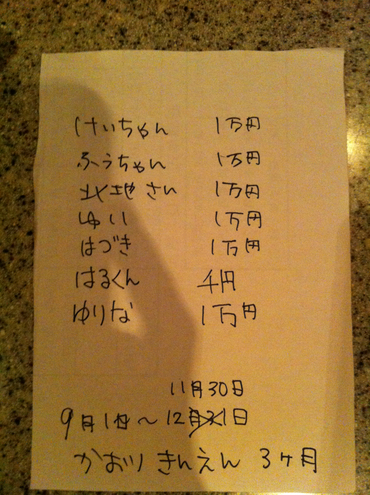 けいちゃん 1万円
ふうちゃん 1万円
北地さん 1万円
ゆい 1万円
はづき 1万円
はるくん 千円
ゆりな 1万円
11月30日
9月1日〜12月31日
かおり きんえん 3ヶ月